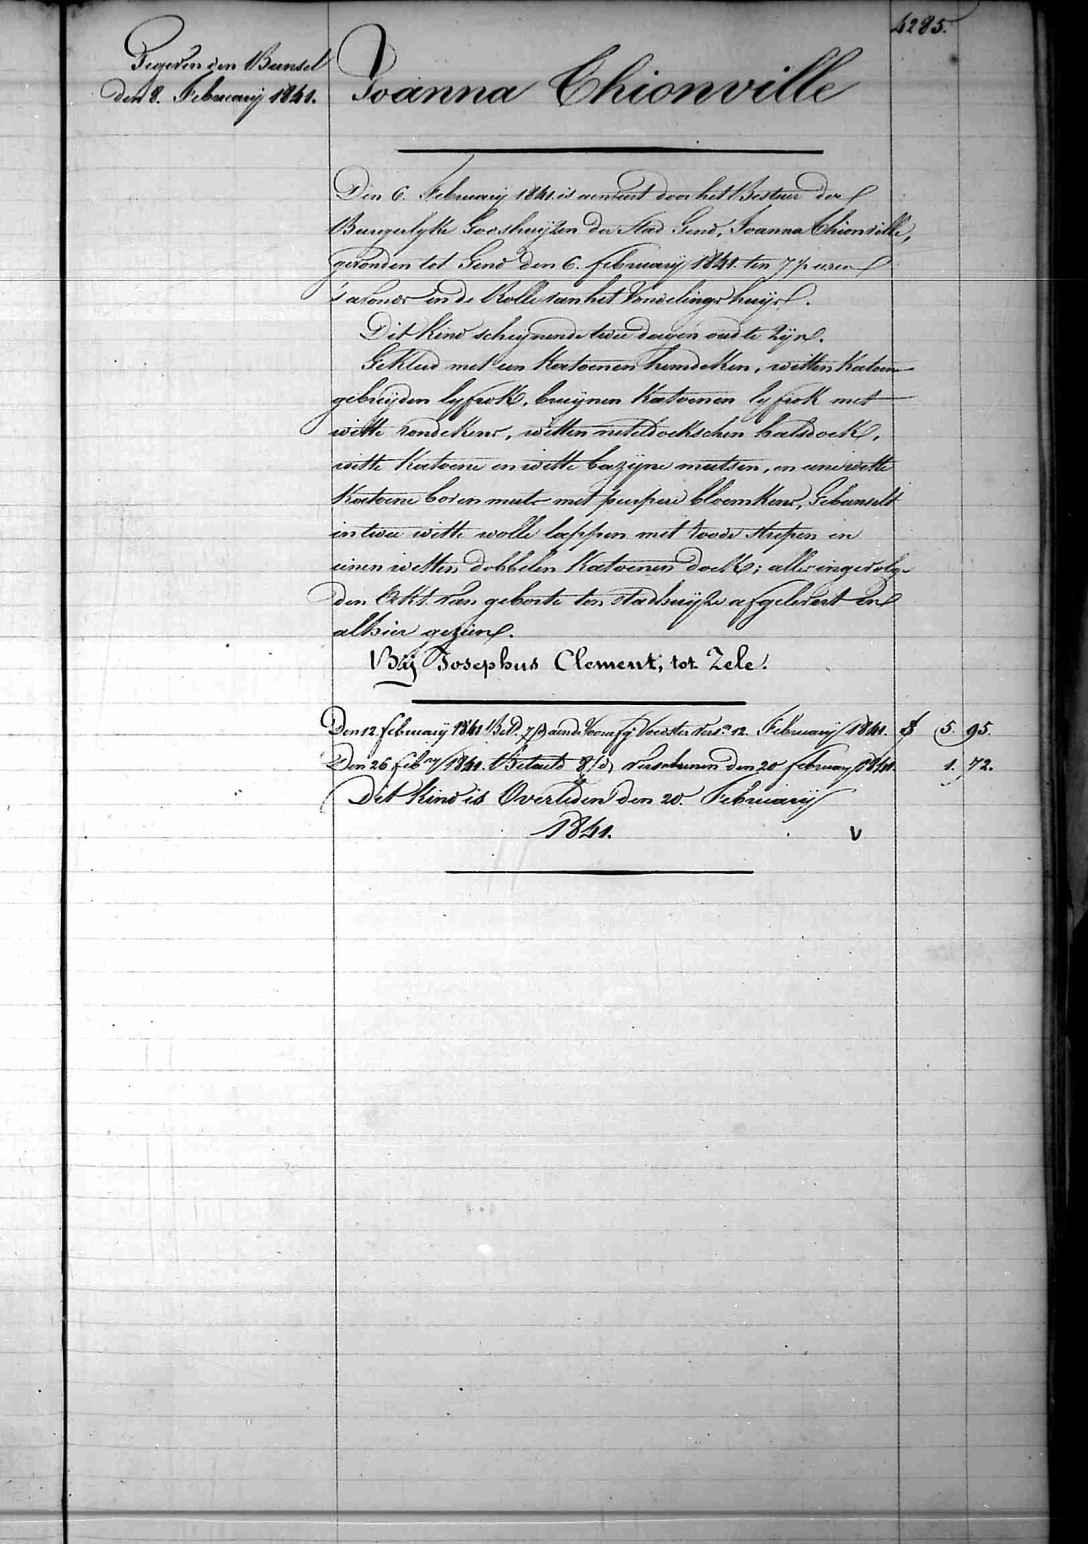 4285.
Gegeven den Bunsel
den 8. February 1841.
Joanna Thionville
Den 6. February 1841 is aenveert door het Bestuer der
Burgerlyke Godshuyzen der Stad Gend, Joanna Thionville,
gevonden tot Gend den 6. february 1841. ten 7 uren
's avonds in de Rolle van het Vondelings huys.
Dit Kind schynende twee dagen oud te zyn.
Gekleed met een Katoenen hemdeken, witten Katoen
gebreyden lyfrok, bruynen Katoenen lyfrok met
witte rondekens, witten neteldoekschen halsdoek,
witte Katoene en witte bazyne mutsen, en eene witte
Katoene boven muts met purpere bloemkens, Gebunselt
in twee witte wolle lappen met roode strepen en
eenen witten dobbelen Katoenen doek; alles ingevolge
den Akt van geborte ten stadhuyze afgelevert en
alhier gezien.
By Josephus Clement, tot Zele.
Den 12 february 1841 Bet. aende Voorsz. Voedster vers. 12. February 1841. 5. 95.
Den 26 feb.ry 1841. Betaelt verschenen den 20 february 1841. 1. 72.
Dit Kind is Overleden den 20. February
1841. V